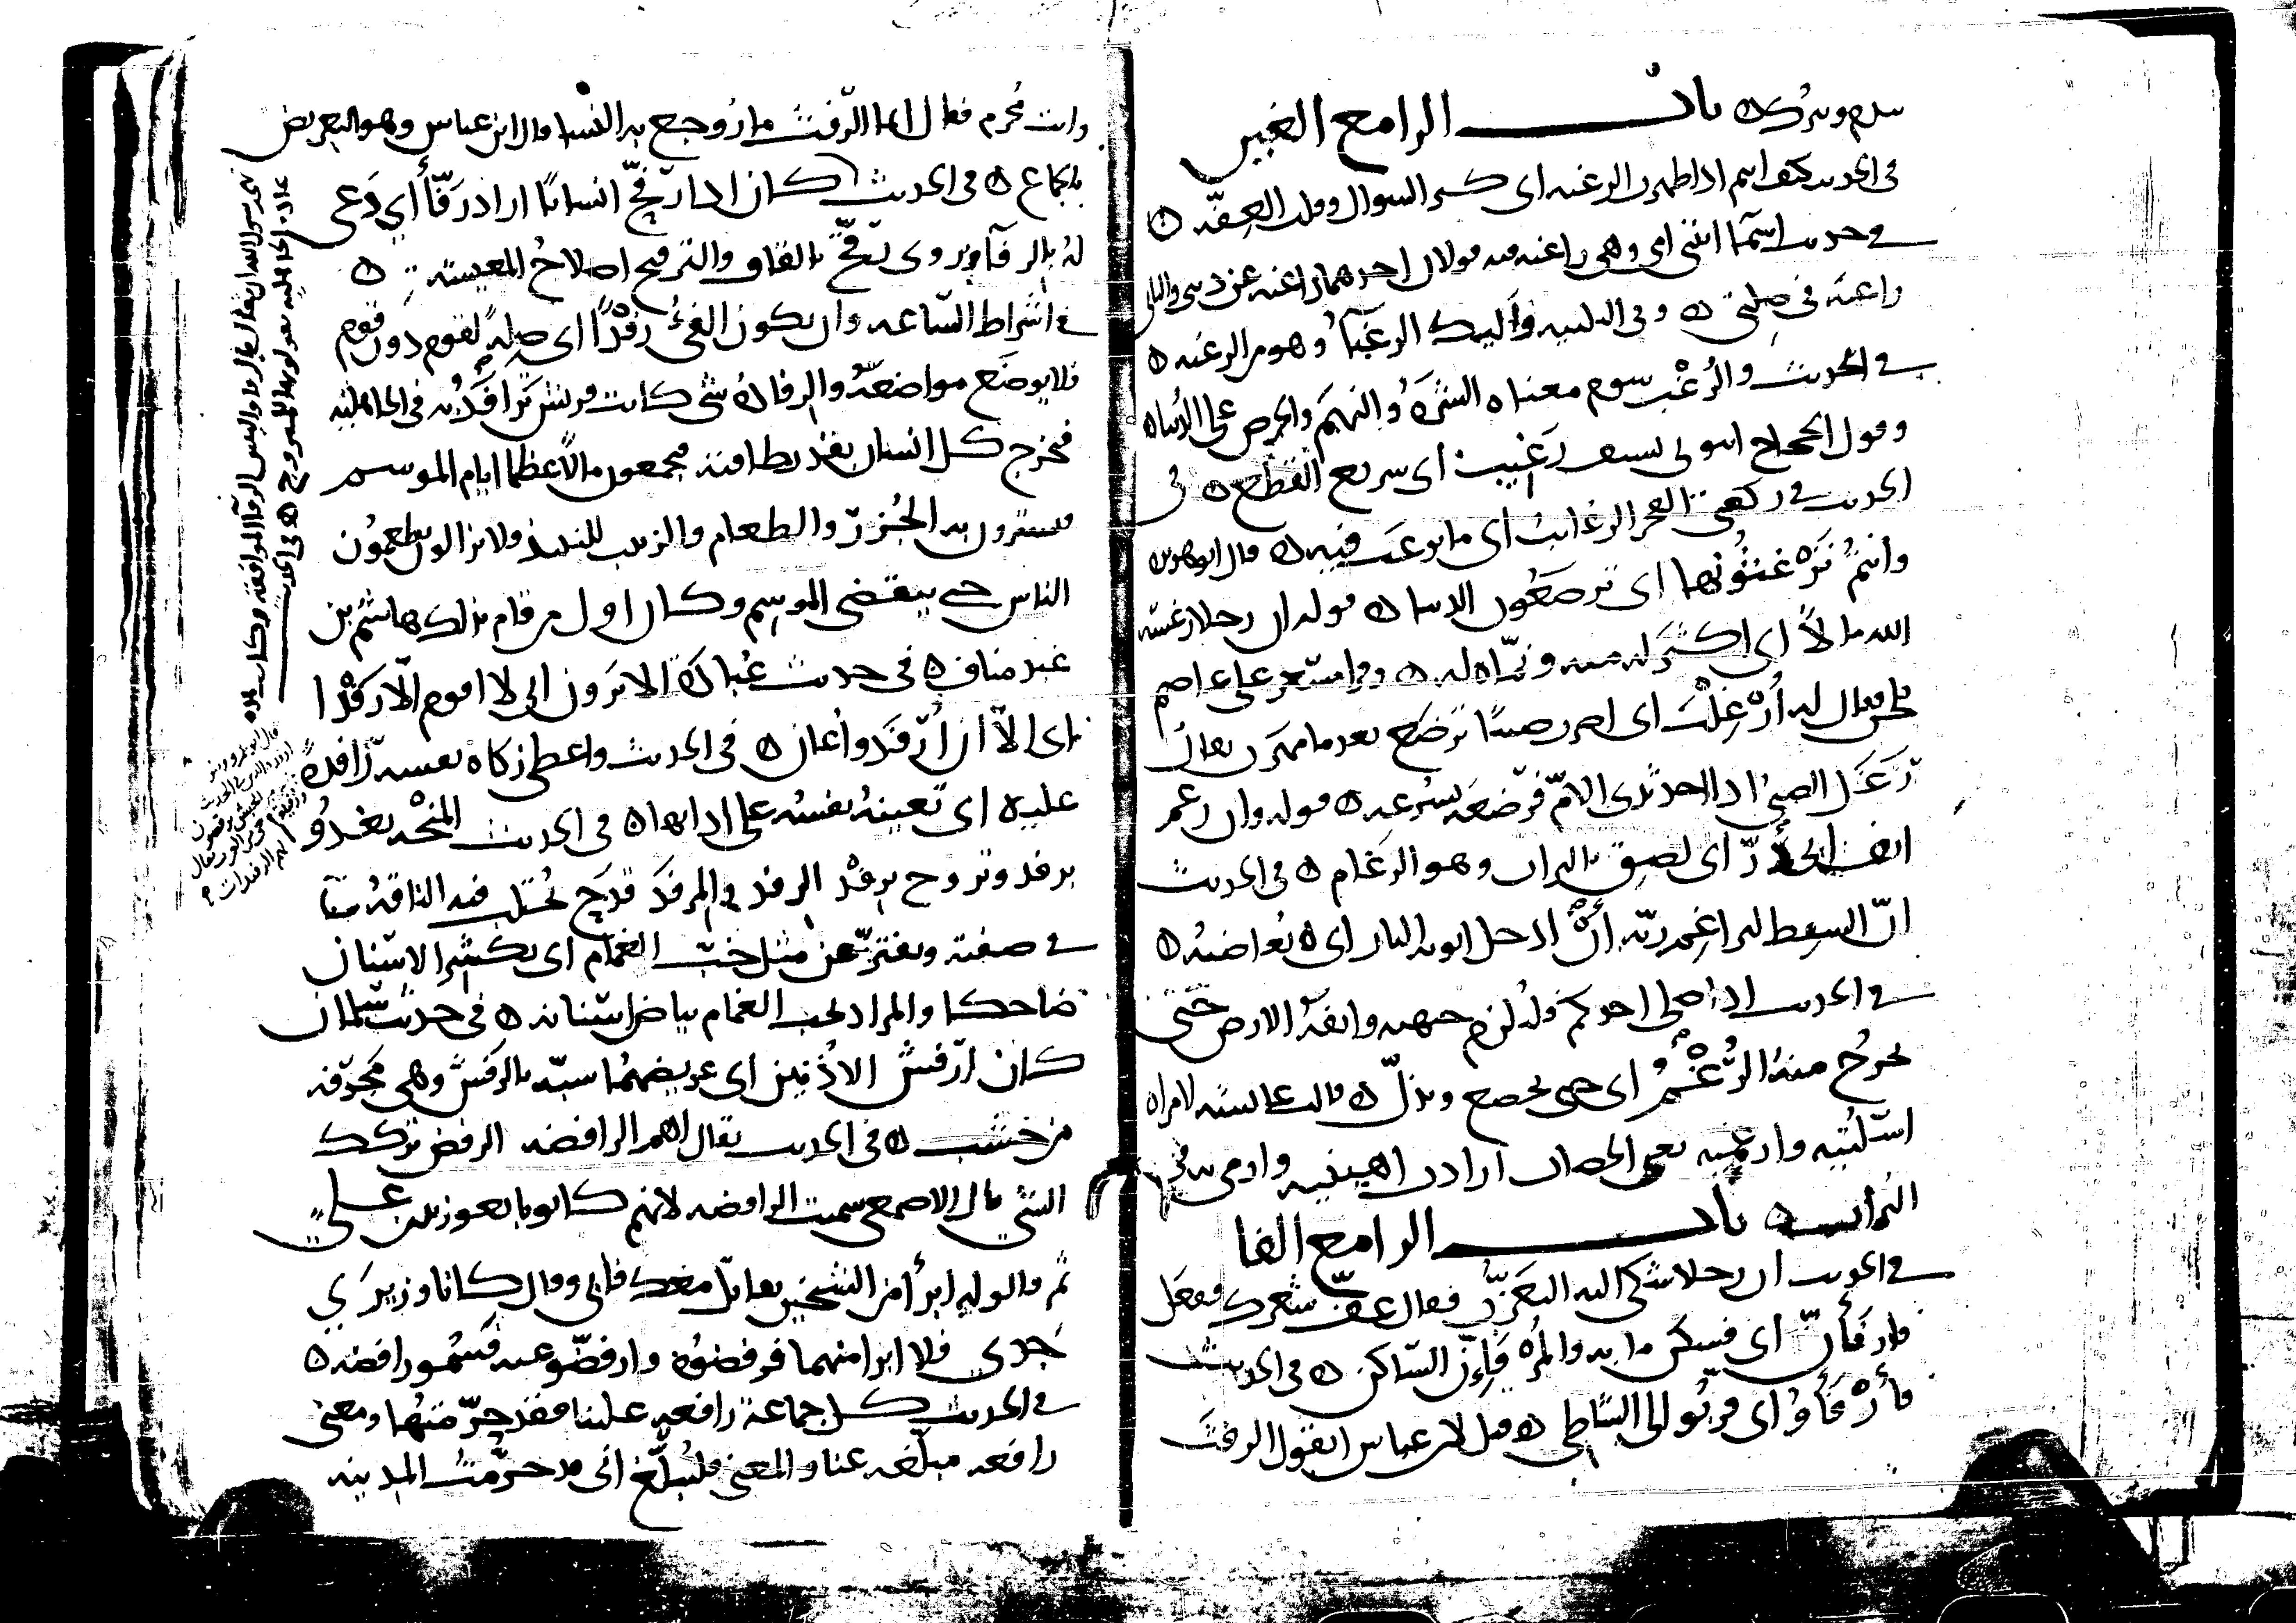 باب الرا مع الغين
في الحديث كيف انتم اذا ظهرت الرغبه اي كثر السوال وقلت العفّه ه
في حديث اسمآ اتتني امي وهي راغبه فيه قولان احدهما راغبه عن ديني والثاني
راغبة في صلتي ه وفي التلبيه واليك الرغبآ وهو من الرغبه ه
في الحديث والرُغْب شوم معناه الشره والنهم والحرص على الدنيا ه
وقول الحجاج ائتوني بسيف رغيب اي سريع القطع ه في
الحديث في ركعتي الفجر الرغائب اي ما يرغب فيه ه قال ابو هريره
وانتم ترغثونها اي ترضعون الدنيا ه قوله ان رجلا رغسه
الله مالاً اي اكثر له منه ونمّاه له ه
فقال له أرغلت اي اصرت صبيًا ترضع بعد ما مهرت يقال
رغل الصبي اذا اخذ ثدي الامّ فرضعه بسرعه ه قوله وان رغم
انف ابي الدرداء اي لصق بالتراب وهو الرغام ه في الحديث
انّ السقط ليراغم ربّه أن ادخل ابويه النار اي يغاضبه ه
في الحديث اذا صلى احدكم فليلزم جبهته وانفه الارض حتى
يخرج منه الرُّغْمُ اي حتى يخضع ويذلّ ه قالت عائشه لامراه
اسلتيه وارغميه يعني الخضاب ارادت اهينيه وارمي به في
التراب ه باب الرا مع الفا
في الحديث ان رجلا شكى اليه التعزّب فقال عفّ شعرك ففعل
فارفأنّ اي فسكن ما به والمرفئن الساكن ه في الحديث
فأرفأوا اي قربوا الى الشاطي ه قيل لابن عباس اتقول الرفث
وانت مُحرم فقال انما الرّفث ما رُوجع به النسا قال ابن عباس وهو التعريض
بالجماع ه في الحديث كان اذا رفّح انسانًا اراد رفّأ اي دعى
له بالرفآ ويروى رقّح بالقاف والترقيح اصلاح المعيشه ه
في اشراط السّاعه وان يكون الفيُ رِفْدًا اي صلة لقوم دون قوم
فلا يوضع مواضعه والرفادة شي كانت قريش ترافدُ به في الجاهلية
فيخرج كل انسان بقدر طاقته فيجمعون مالاً عظيما ايام الموسم
فيشترون به الجُزر والطعام والزبيب للنبيذ ولا يزالون يطعمون
الناس حتى ينقضي الموسم وكان اول من قام بذلك هاشم بن
عبد مناف ه في حديث عُبادة الا ترون اني لا اقوم الّا رِفْدا
اي الاّ ان أرفد وأعان ه في الحديث واعطى زكاه نفسه رافدةً
عليه اي تعينهُ نفسُه على ادائها ه في الحديث المنحه تغدو
برفد وتروح برفد الرفد والمرفد قدح تُحتلب فيه الناقهُ
في صفته ويفترّ عن مثل حبّ الغمام اي يكشر الاسنان
ضاحكا والمراد بحب الغمام بياض اسنانه ه في حديث سلمان
كان ارفش الاذنين اي عريضهما شبّه بالرفش وهي مجرفه
من خشب ه في الحديث يقال لهم الرافضه الرفض تركك
الشي قال الاصمعي سميت الرافضه لانهم كانوا بايعوا زيد بن علي
ثم قالوا له ابرأ من الشيخين نقاتل معك فابى وقال كانا وزيري
جدي فلا ابرا منهما فرفضوه وارفضّوا عنه فسُمّوا رافضه ه
في الحديث كل جماعة رافعه علينا فقد حرّمتها ومعنى
رافعه مبلّغه عنا والمعنى فلتبلّغ اني قد حرّمت المدينه